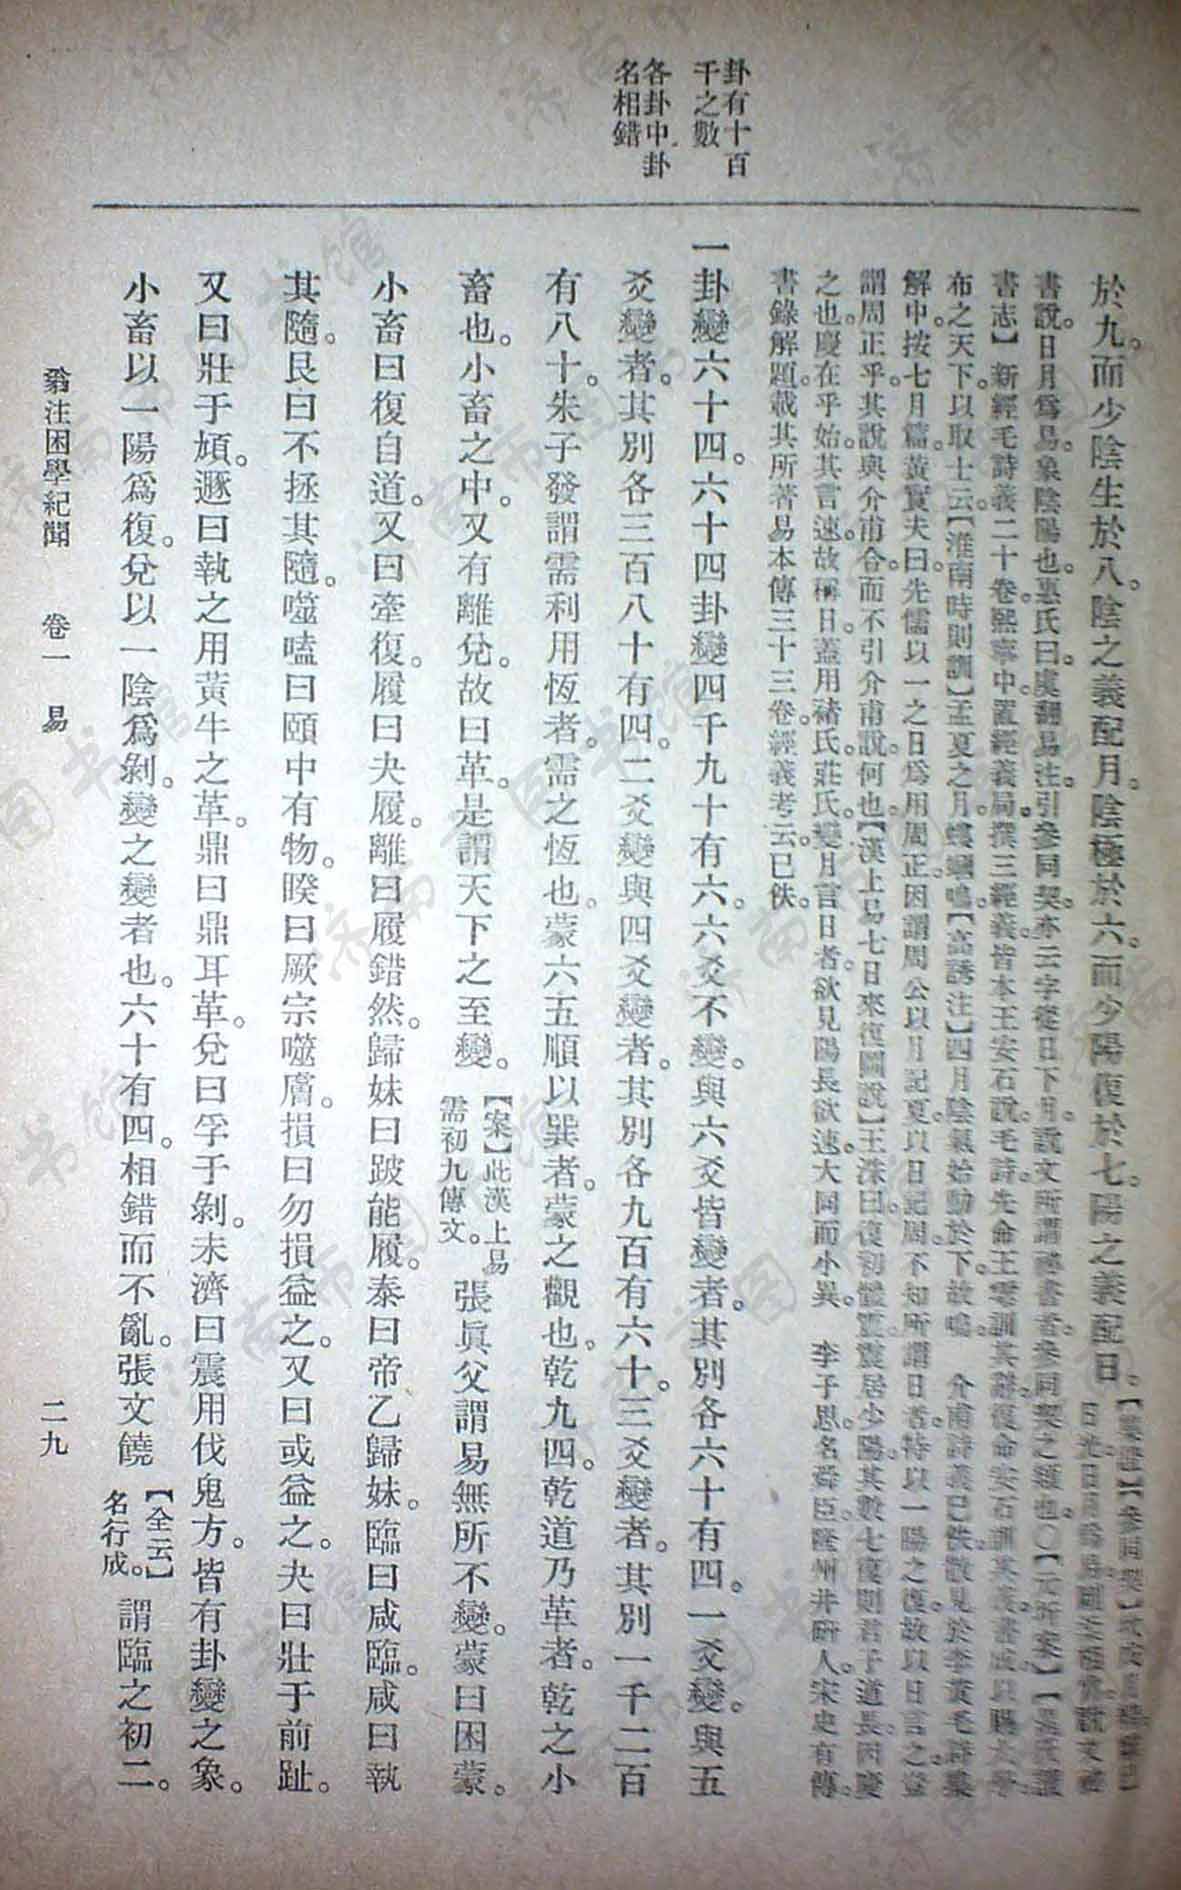 卦有十百
千之數
各卦中卦
名相錯
於九。而少陰生於八。陰之義配月。陰極於六。而少陽復於七。陽之義配日。
書說。日月爲易。象陰陽也。惠氏曰。虞翻易注。引參同契。亦云字從日下月。說文所謂祕書者。參同契之類也。〇【元圻案】
書志】新經毛詩義二十卷。熙寧中。置經義局。撰三經義。皆本王安石說。毛詩。先命王雱訓其辭。復命安石訓其義。書成。以賜太學。
布之天下。以取士云。【淮南時則訓】孟夏之月。螻蟈鳴。【高誘注】四月陰氣始動於下。故鳴。 介甫詩義已佚。散見於李黃毛詩集
解中。按七月篇。黃實夫曰。先儒以一之日爲用周正。因謂周公以月記夏。以日記周。不知所謂日者。特以一陽之復。故以日言之。豈
謂周正乎。其說與介甫合。而不引介甫說。何也。【漢上易七日來復圖說】王洙曰。復初體震。震居少陽。其數七。復則君子道長。因慶
之也。慶在乎始。其言速。故稱日。蓋用褚氏莊氏變月言日者。欲見陽長欲速。大同而小異。 李子思。名舜臣。隆州井研人。宋史有傳。
書錄解題。載其所著易本傳三十三卷。經義考云。已佚。
一卦變六十四。六十四卦變四千九十有六。六爻不變。與六爻皆變者。其別各六十有四。一爻變。與五
爻變者。其別各三百八十有四。二爻變與四爻變者。其別各九百有六十。三爻變者。其別一千二百
有八十。朱子發謂需利用恆者。需之恆也。蒙六五順以巽者。蒙之觀也。乾九四。乾道乃革者。乾之小
畜也。小畜之中。又有離兌。故曰革。是謂天下之至變。【案】此漢上易
需初九傳文。張眞父謂易無所不變。蒙曰困蒙。
小畜曰復自道。又曰牽復。履曰夬履。離曰履錯然。歸妹曰跛能履。泰曰帝乙歸妹。臨曰咸臨。咸曰執
其隨。艮曰不拯其隨。噬嗑曰頤中有物。暌曰厥宗噬膚。損曰勿損益之。又曰或益之。夬曰壯于前趾。
又曰壯于頄。遯曰執之用黃牛之革。鼎曰鼎耳革。兌曰孚于剝。未濟曰震用伐鬼方。皆有卦變之象。
小畜以一陽爲復。兌以一陰爲剝。變之變者也。六十有四。相錯而不亂。張文饒【全云】
名行成。謂臨之初二。
翁注困學紀聞 卷一 易 二九